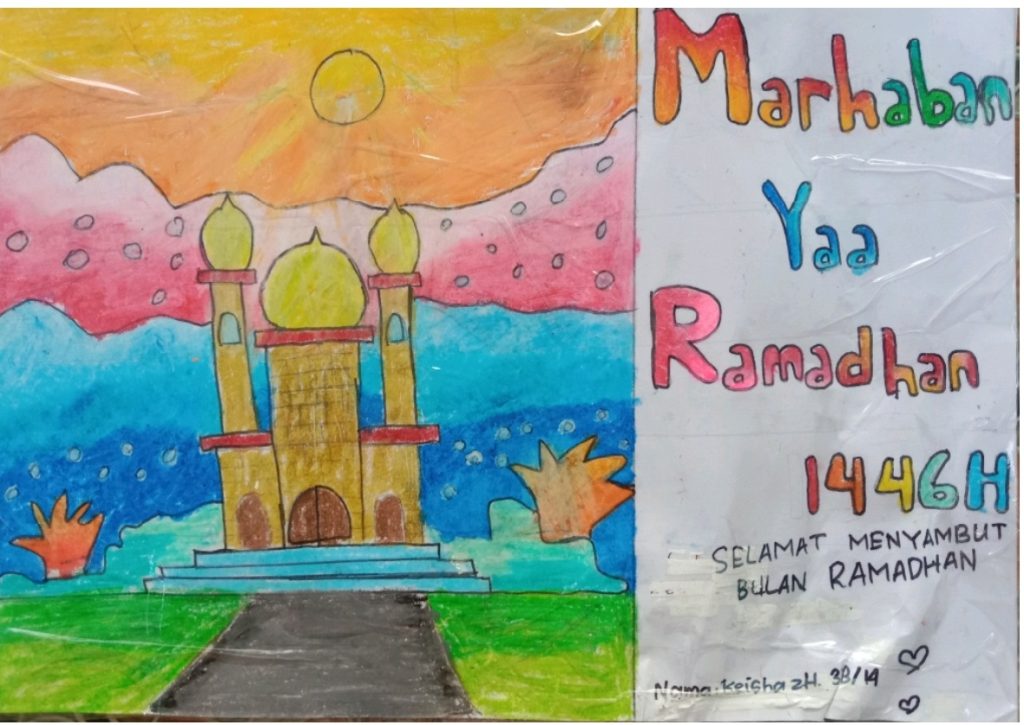 Marhaban
Yaa
Ramadhan
1446H
SELAMAT MENYAMBUT
BULAN RAMADHAN
Nama: Keisha zH. 3B/14